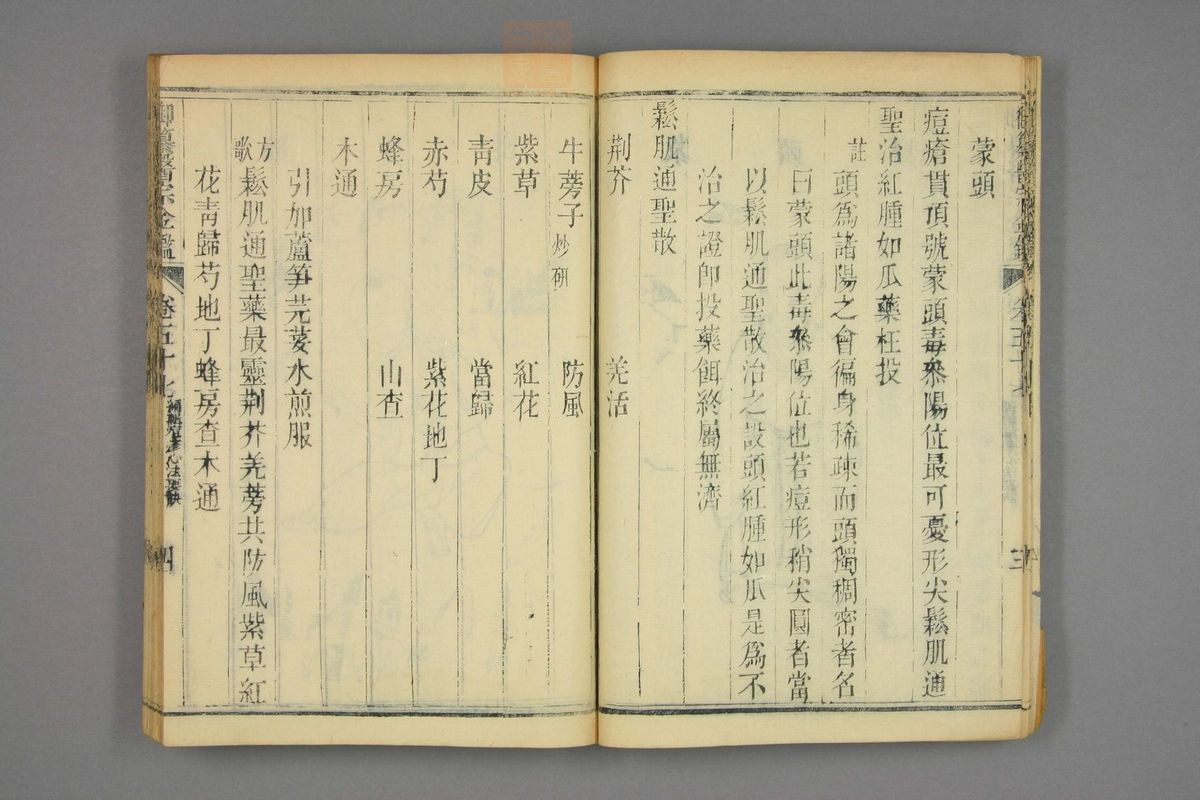 蒙頭
痘瘡貫頂號蒙頭毒叅陽位最可憂形尖鬆肌通
聖治紅腫如瓜藥枉投
註
頭為諸陽之會徧身稀疎而頭獨稠密者名
曰蒙頭此毒叅陽位也若痘形稍尖圓者當
以鬆肌通聖散治之設頭紅腫如瓜是為不
治之證即投藥餌終屬無濟
鬆肌通聖散
荆芥 羌活
牛蒡子炒研 防風
紫草 紅花
青皮 當歸
赤芍 紫花地丁
蜂房 山查
木通
引加蘆笋芫荽水煎服
方歌
鬆肌通聖藥最靈荆芥羌蒡共防風紫草紅
花青歸芍地丁蜂房查木通
御纂醫宗金鑑 卷五十七 四
御纂醫宗金鑑 卷五十七 三